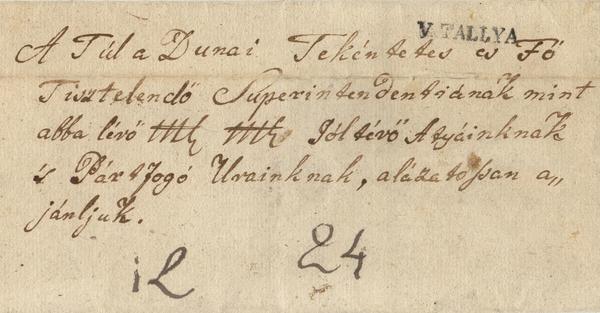 V. TALLYA
A Túl a Dunai Tekéntetes es Fő
Tisztelendő Superintendentiának mint
abba lévő tttk tttk Jóltévő Atyáinknak
és Pártfogó Urainknak, alázatossan a„
jánljuk.
12 24